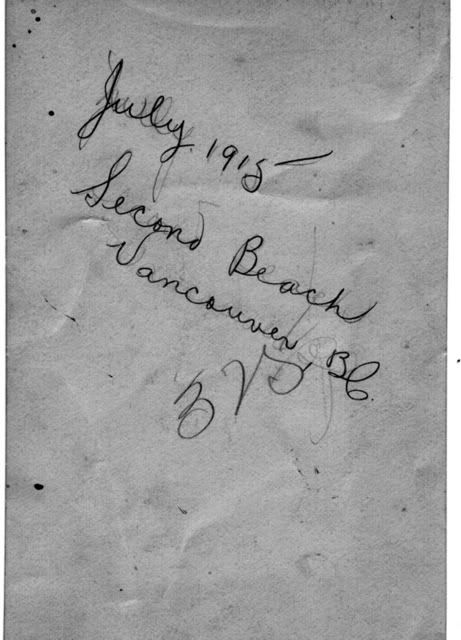 July. 1915 —
Second Beach
Vancouver, BC.